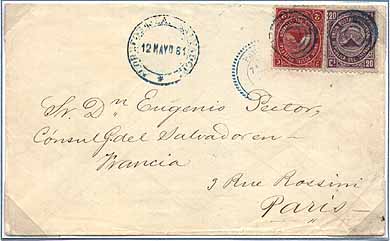 12 MAYO 81
2
20
20
Sr. Dn Eugenio Pector,
Consul G. del Salvador en
Francia
3 Rue Rossini
Paris